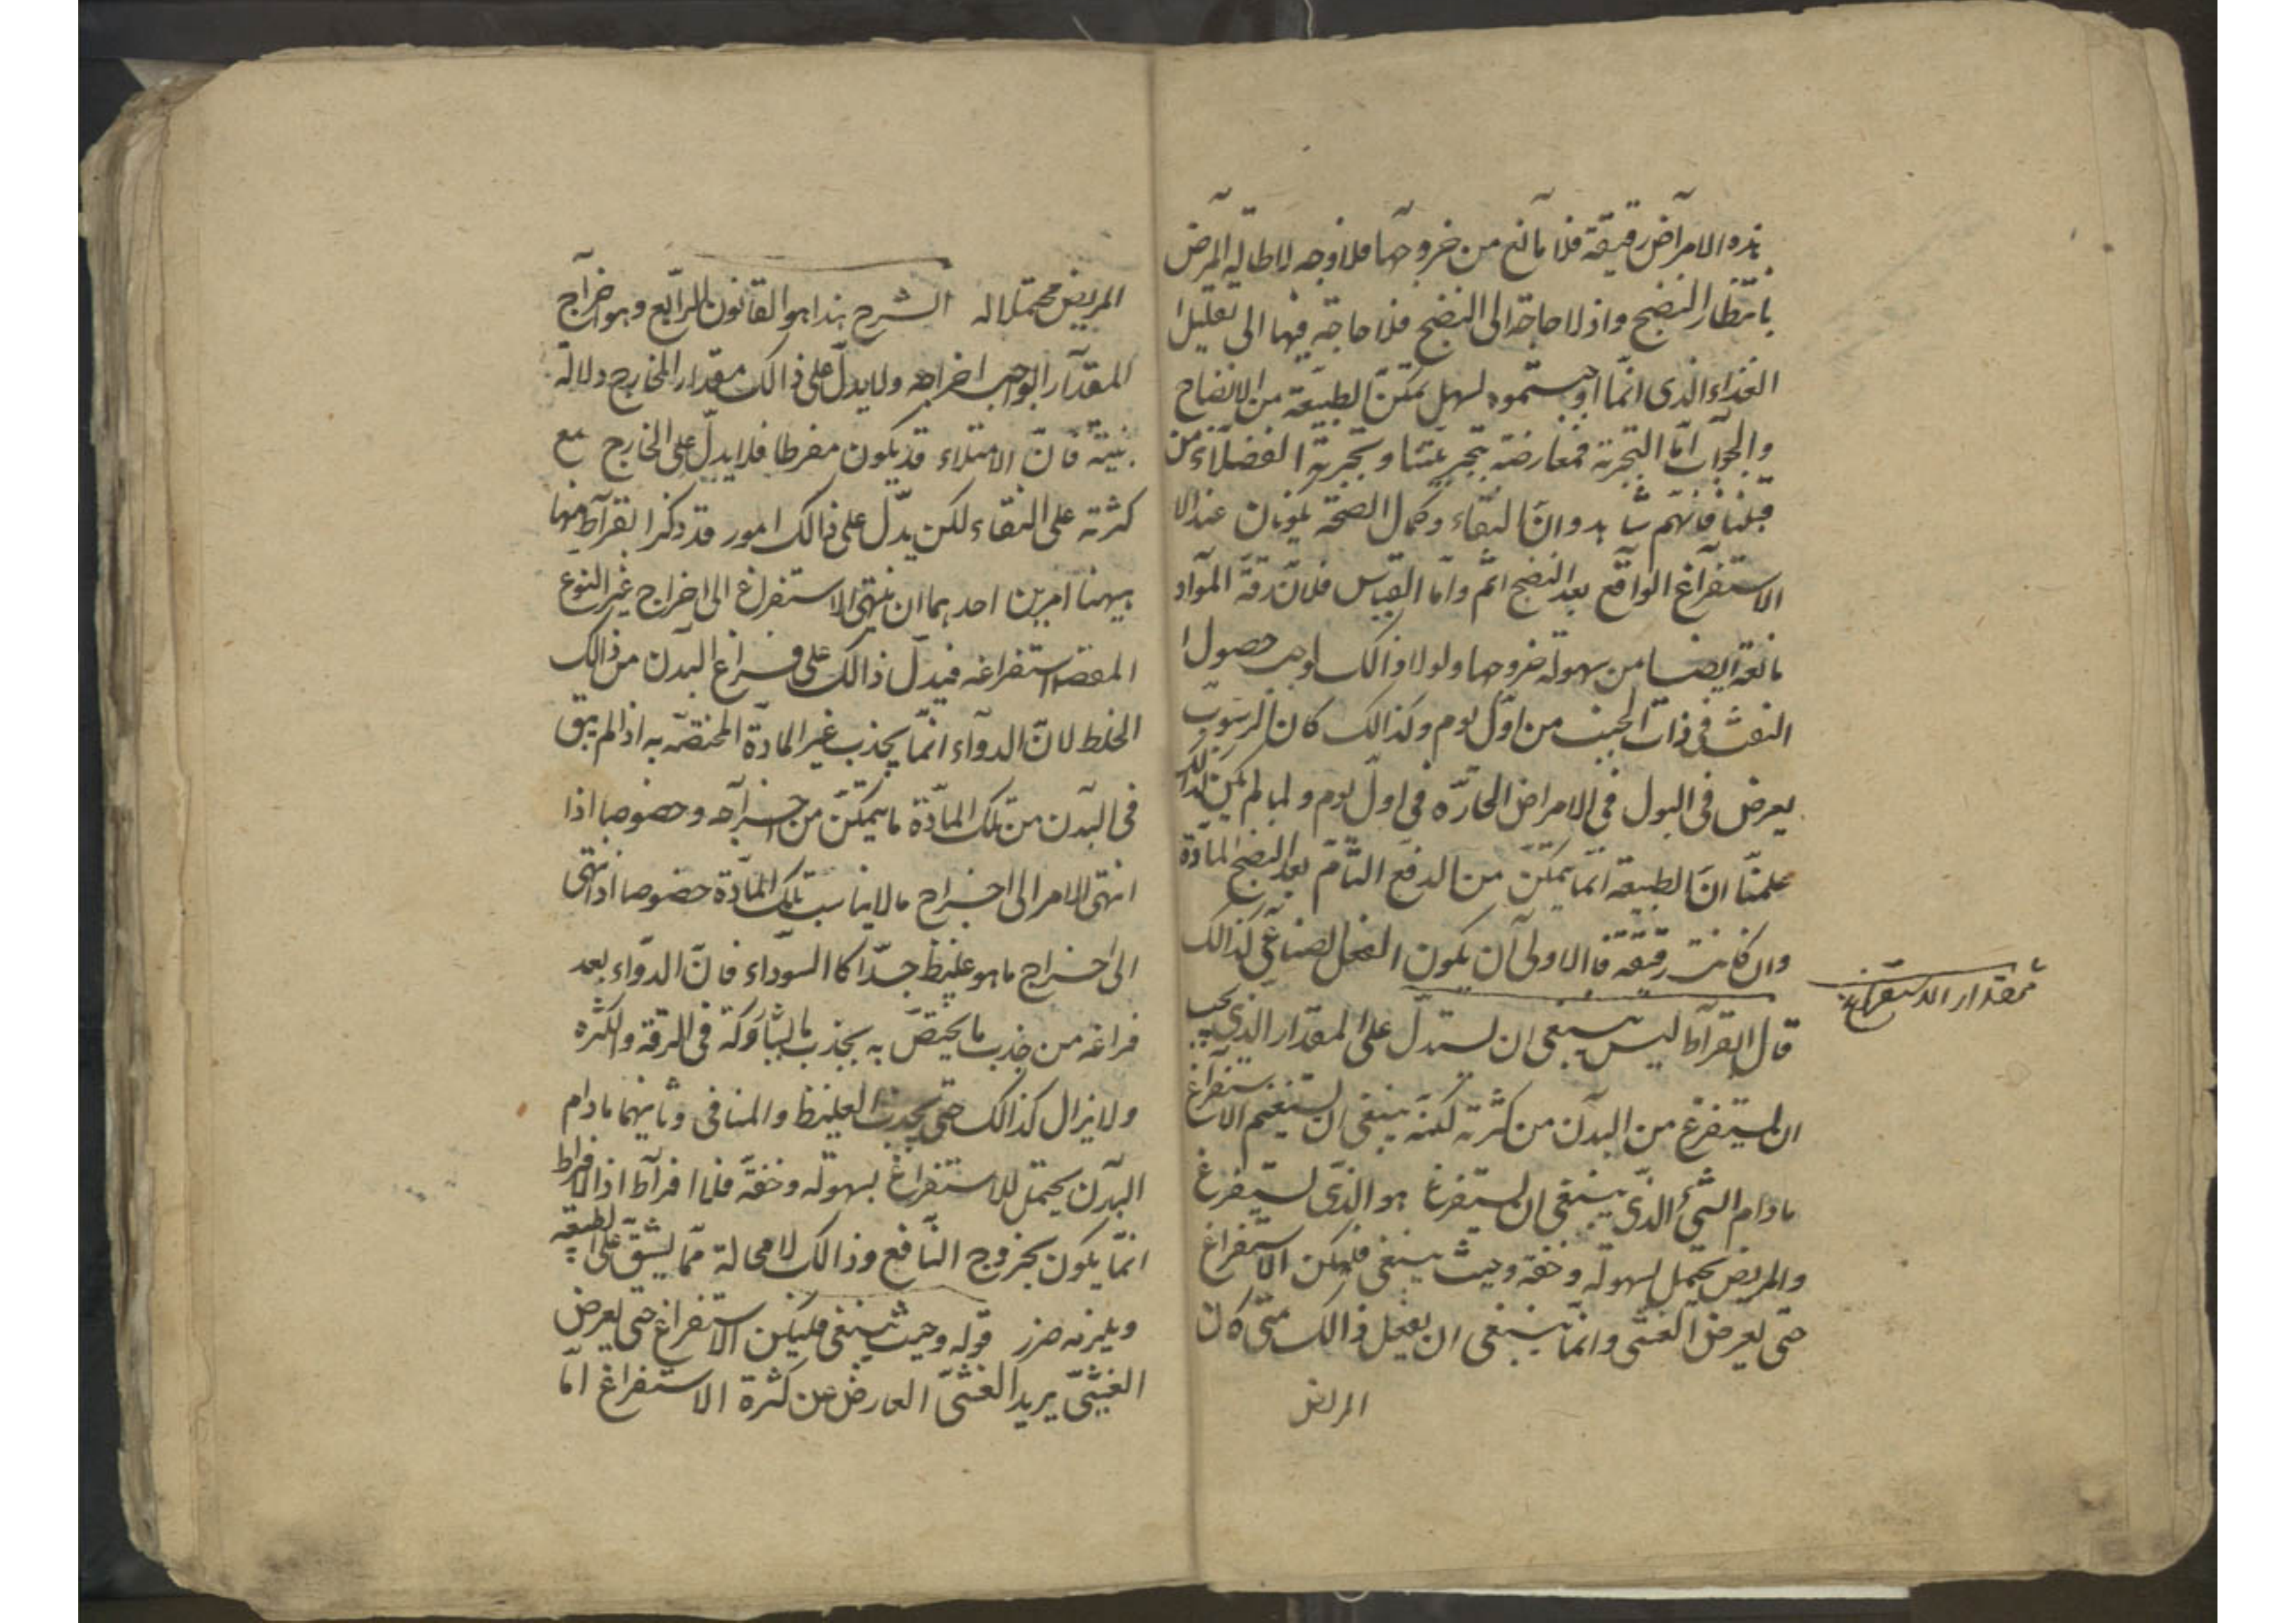 هذه الامراض رقيقة فلا مانع من خروجها فلا وجه لاطالة المرض
بانتظار النضج واذ لا حاجة الى النضج فلا حاجة فيها الى تقليل ا
الغذاء الذى انما اوجبتموه لسهل تمكن الطبيعة من الانضاج
والجواب اما التجربة فمعارضة بتجربتنا وتجربة الفضلاء من
قبلنا فانهم شاهدوا ان النقاء وكمال الصحة يكونان عند الا
الاستفراغ الواقع بعد النضج اتم واما القياس فلان رقة المواد
مانعة ايضا من سهولة خروجها ولولا ذالك لوجب حصول ا
النفث فى ذات الجنب من اول يوم وكذالك كان الرسوب
يعرض فى البول فى الامراض الحارة فى اول يوم ولما لم يكن كذالك
علمنا ان الطبيعة انما يمكن من الدفع التام بعد النضج المادة
وان كانت رقيقة فالاولى ان يكون الفعل الصناعى كذالك
مقدار الاستفراغ
قال ابقراط ليس ينبغى ان يستدل على المقدار الذى يجب
ان يستفرغ من البدن من كثرته لكنه ينبغى ان يستغنم الاستفراغ
مادام الشئ الذى ينبغى ان يستفرغ هو الذى يستفرغ
والمريض يحتمل بسهولة وخفة وحيث ينبغى فليكن الاستفراغ
حتى يعرض الغشى وانما ينبغى ان يفعل ذالك متى كان
المريض
المريض محتملا له الشرح هذا هو القانون الرابع وهو اخراج
المقدار الواجب اخراجه ولا يدل على ذالك مقدار الخارج دلالة
بينة فان الامتلاء قد يكون مفرطا فلا يدل على الخارج مع
كثرته على النقاء لكن يدل على ذالك امور قد ذكر ابقراط منها
ههنا امرين احدهما ان ينتهى الاستفراغ الى اخراج غير النوع
المقصد استفراغه فيدل ذالك على فراغ البدن من ذالك
الخلط لان الدواء انما يجذب غير المادة المختصه به اذا لم يبق
فى البدن من تلك المادة ما يتمكن من اخراجه وخصوصا اذا
انتهى الامر الى اخراج ما لا يناسب تلك المادة خصوصا اذا انتهى
الى اخراج ما هو غليظ جدا كا السوداء فان الدواء بعد
فراغه من جذب ما يختص به يجذب ما يشاركه فى الرقة والكثره
ولا يزال كذالك حتى يجذب الغليظ والمنافى وثانيهما مادام
البدن يحتمل للاستفراغ بسهولة وخفة فلا افراط اذ الافراط
انما يكون بخروج النافع وذالك لا محالة مما يشق على الطبيعه
ويلزمه ضرر قوله وحيث ينبغى فليكن الاستفراغ حتى يعرض
الغشى يريد الغشى العارض عن كثرة الاستفراغ اما